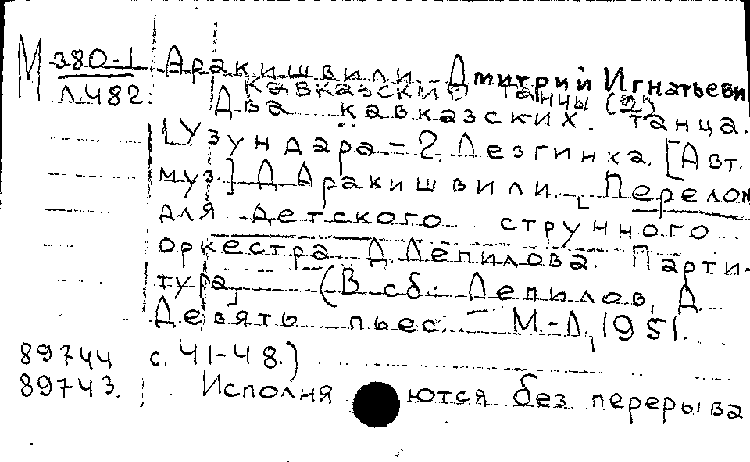 М 380-1 Аракишвили, Дмитрий Игнатьеви
Кавказские танцы (2)
Л482. Два кавказских танца.
[Узундара – 2. Лезгинка. [Авт.
муз.] Д Аракишвили. Перелож
для детского струнного
оркестра Д Лепилова. Парти-
тура] (В сб: Лепилов, Д
Девять пьес. – М-Л, 1951.
89744 с. 41-48.)
89743. Исполняются без перерыва